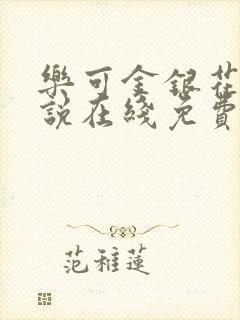 樂可金銀花
說在綫免費
范稚蓮